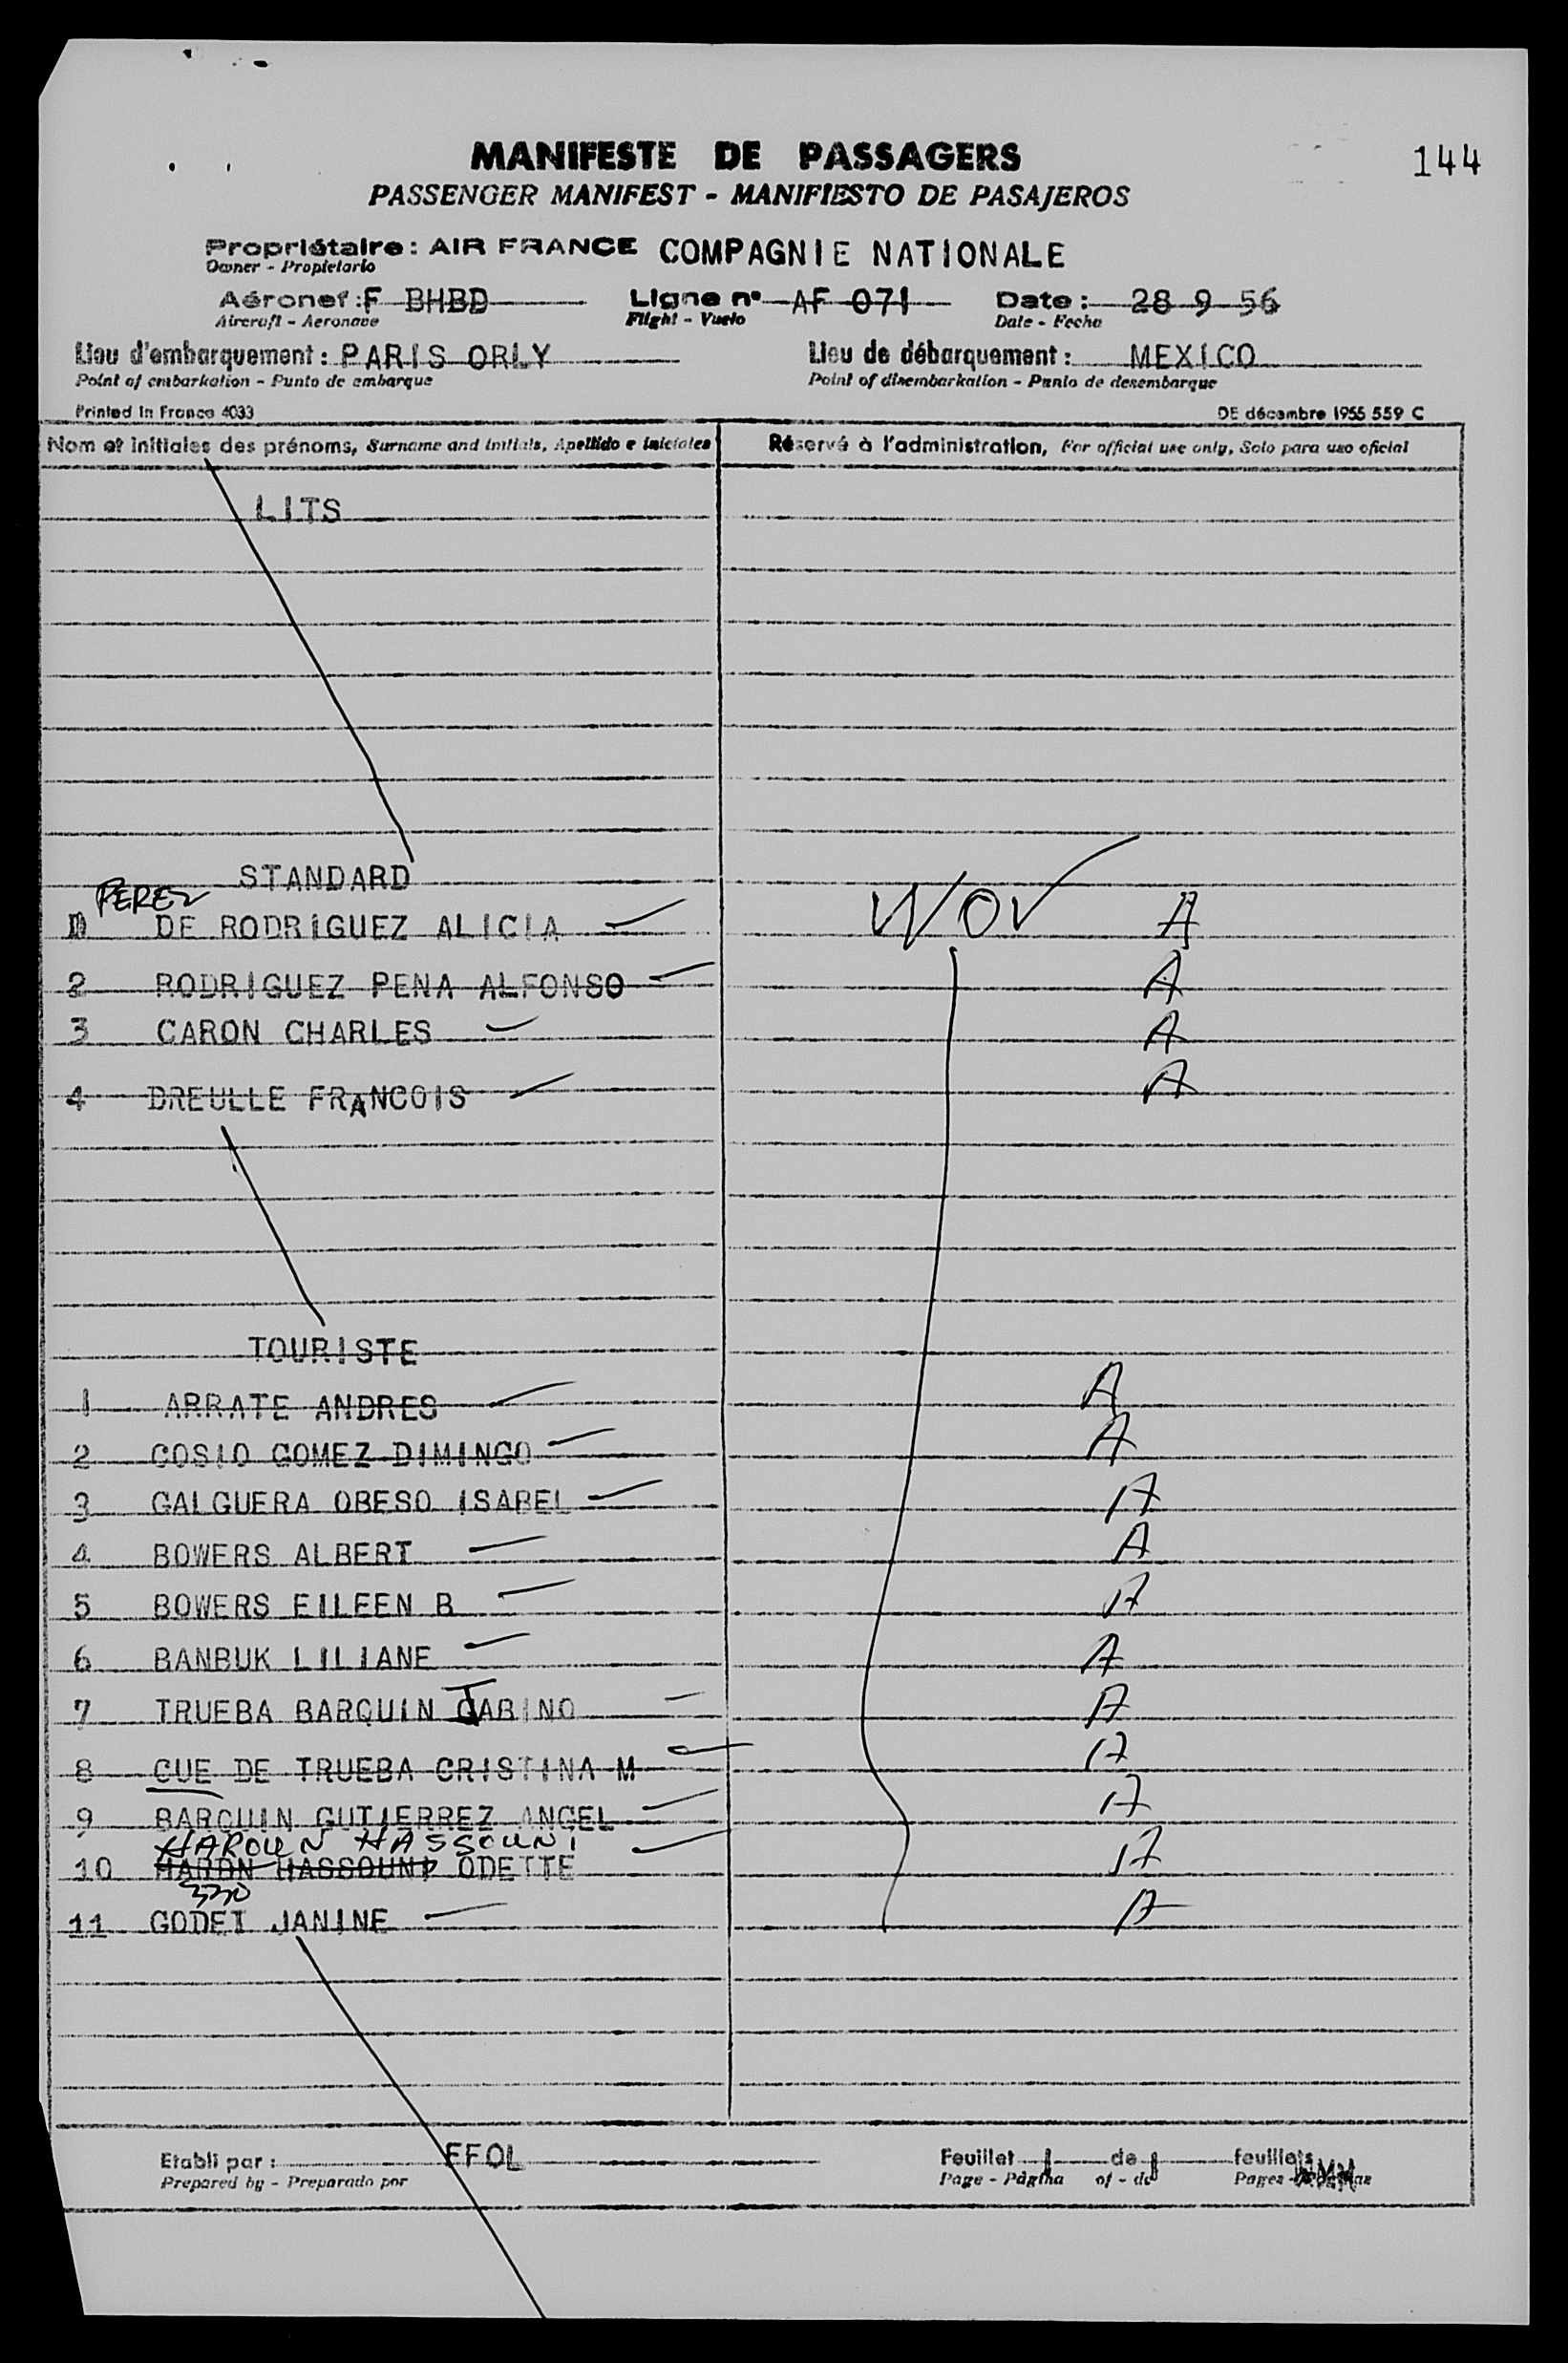 144
MANIFESTE DE PASSAGERS
PASSENGER MANIFEST - MANIFIESTO DE PASAJEROS
Propriétaire : AIR FRANCE COMPAGNIE NATIONALE
Owner - Propietario
Aéronef : F BHBD Ligne n° AF 071 Date : 28 9 56
Aircraft - Aeronave Flight - Vuelo Date - Fecha
Lieu d'embarquement : PARIS ORLY Lieu de débarquement : MEXICO
Point of embarkation - Punto de embarque Point of disembarkation - Punto de desembarque
Printed in France 4033 DE décembre 1955 559 C
Nom et initiales des prénoms, Surname and initials, Apellido e iniciales Réservé à l'administration, For official use only, Solo para uso oficial
LITS
STANDARD
PEREZ
DE RODRIGUEZ ALICIA A
2 RODRIGUEZ PENA ALFONSO A
3 CARON CHARLES A
4 DREULLE FRANCOIS A
TOURISTE
1 ARRATE ANDRES A
2 COSIO GOMEZ DIMINGO A
3 GALGUERA OBESO ISABEL A
4 BOWERS ALBERT A
5 BOWERS EILEEN B A
6 BANBUK LILIANE A
7 TRUEBA BARQUIN JABINO A
8 CUE DE TRUEBA CRISTINA M A
9 BARQUIN GUTIERREZ ANGEL A
HAROUN HASSOUNI
10 HARDN HASSOUN ODETTE A
330
11 GODET JANINE A
Etabli par : FFOL Feuillet 1 de 1 feuillets
Prepared by - Preparado por Page - Página of - de Pages